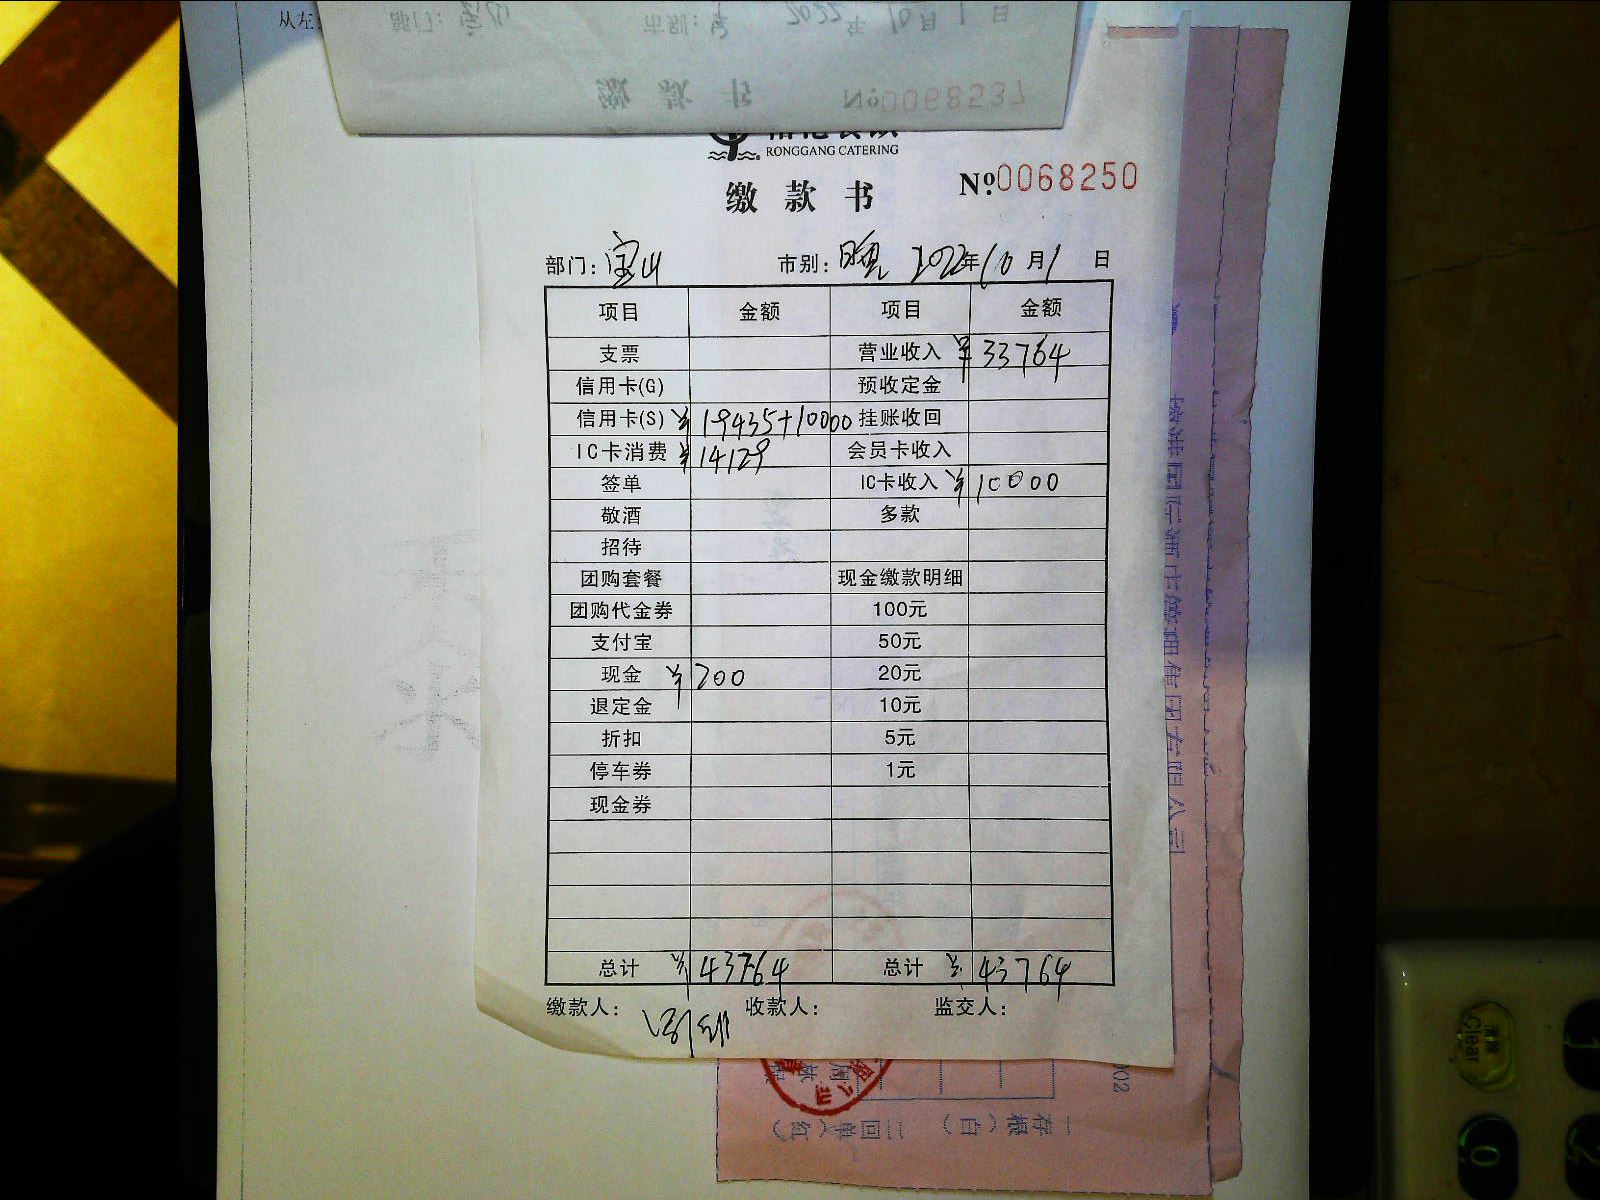 从左
部门: 宝山 市别: 2022年10月1日
缴款书 №0068537
RONGGANG CATERING
缴款书 №0068250
部门: 宝山 市别: 晚 2022年10月1日
项目 金额 项目 金额
支票 营业收入 ¥33764
信用卡(G) 预收定金
信用卡(S) ¥19435+10000 挂账收回
IC卡消费 ¥14129 会员卡收入
签单 IC卡收入 ¥10000
敬酒 多款
招待
团购套餐 现金缴款明细
团购代金券 100元
支付宝 50元
现金 ¥200 20元
退定金 10元
折扣 5元
停车券 1元
现金券
总计 ¥43764 总计 ¥43764
缴款人: 收款人: 监交人:
一存根(白) 二回单(红)
清除
Clear
1
0
2